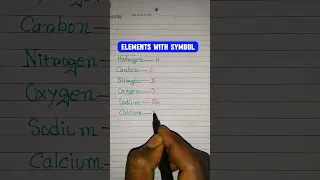 ELEMENTS WITH SYMBOL
Hydrogen — H
Carbon — C
Nitrogen — N
Oxygen — O
Sodium — Na
Calcium —
Carbon
Nitrogen
Oxygen
Sodium
Calcium